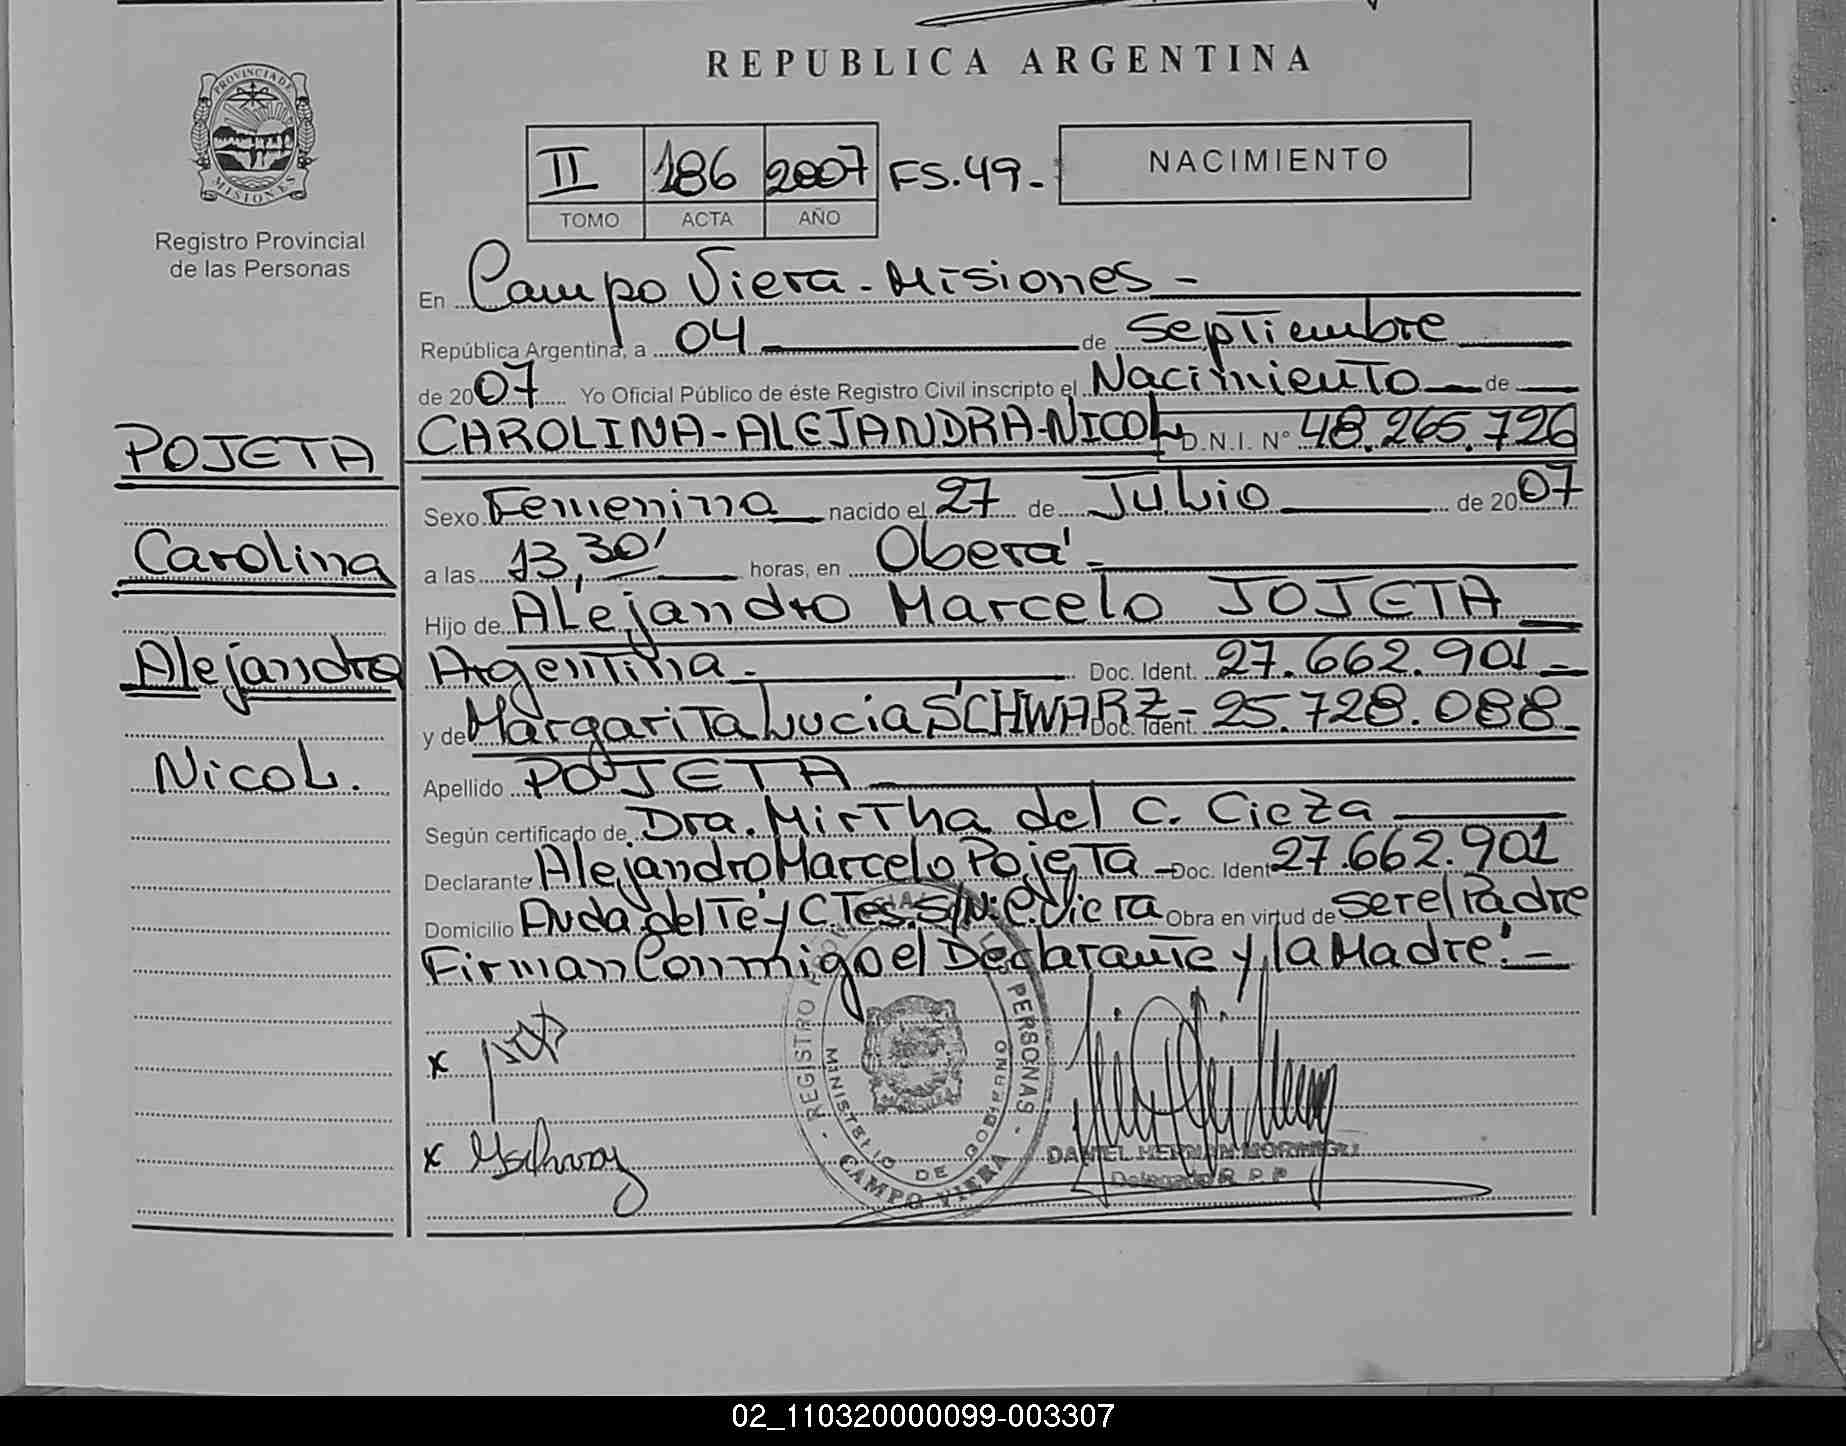 REPUBLICA ARGENTINA
PROVINCIA DE
MISIONES
Registro Provincial
de las Personas
II 186 2007 FS.49.-
TOMO ACTA AÑO
NACIMIENTO
En Campo Viera - Misiones -
República Argentina, a 04 de Septiembre
de 2007 Yo Oficial Público de éste Registro Civil inscripto el Nacimiento de
CAROLINA-ALEJANDRA-NICOL D.N.I. N° 48.265.726
POJETA
Sexo Femenina nacido el 27 de Julio de 2007
Carolina
a las 13,30' horas, en Oberá -
Hijo de Alejandro Marcelo JOJETA
Alejandra
Argentina. Doc. Ident. 27.662.901 -
y de Margarita Lucia SCHWARZ - Doc. Ident. 25.728.088
Nicol.
Apellido POJETA
Según certificado de Dra. Mirtha del C. Cieza
Declarante Alejandro Marcelo Pojeta - Doc. Ident 27.662.901
Domicilio Avda. del Té y C.Tes. S/N: C. Viera Obra en virtud de ser el Padre
Firman Conmigo el Declarante y la Madre. -
x
x
REGISTRO DE LAS PERSONAS
MINISTERIO DE GOBIERNO
- CAMPO VIERA -
DANIEL HERNAN
Delegado R. P. P.
02_110320000099-003307